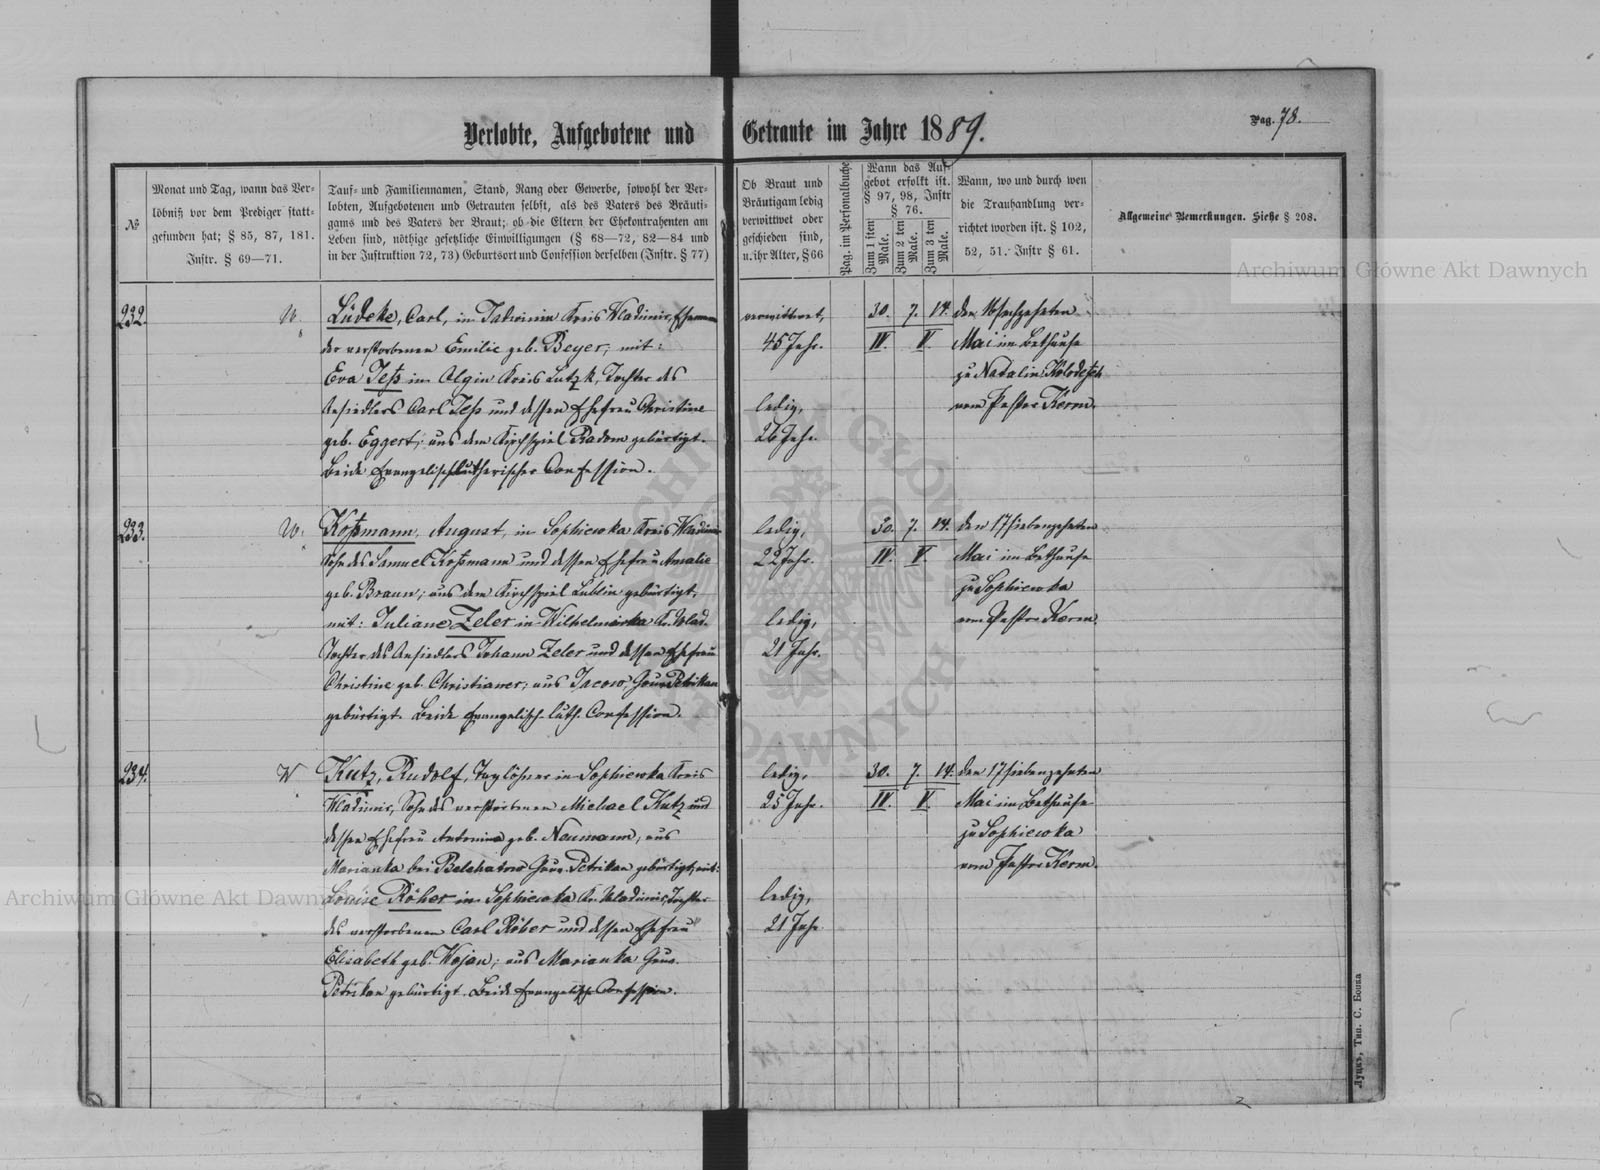 Verlobte, Aufgebotene und Getraute im Jahre 1889.
Pag. 78.
№
Monat und Tag, wann das Ver-
löbniß vor dem Prediger statt-
gefunden hat; § 85, 87, 181.
Instr. § 69—71.
Tauf- und Familiennamen, Stand, Rang oder Gewerbe, sowohl der Ver-
lobten, Aufgebotenen und Getrauten selbst, als des Vaters des Bräuti-
gams und des Vaters der Braut; ob die Eltern der Ehekontrahenten am
Leben sind, nöthige gesetzliche Einwilligungen (§ 68—72, 82—84 und
in der Instruktion 72, 73) Geburtsort und Confession derselben (Instr. § 77)
Ob Braut und
Bräutigam ledig
verwittwet oder
geschieden sind,
u. ihr Alter, § 66
Pag. im Personalbuche
Wann das Auf-
gebot erfolkt ist.
§ 97, 98, Instr
§ 76.
Zum 1 sten
Male.
Zum 2 ten
Male.
Zum 3 ten
Male.
Wann, wo und durch wen
die Trauhandlung ver-
richtet worden ist. § 102,
52, 51. Instr § 61.
Allgemeine Bemerkungen. Siehe § 208.
232.
W.
Lüdeke, Carl, in Kreis Wladimir, Ehemann
der verstorbenen Emilie geb. Beyer, mit:
Eva Jeß in Olgin Kreis Lutzk, Tochter des
Ansiedlers Carl Jeß und dessen Ehefrau Christine
geb. Eggert; aus dem Kirchspiel Radom gebürtigt.
Beide Evangelisch lutherischer Confession.
verwittwet,
45 Jahr.
ledig,
26 Jahr.
30. 7. 14.
IV. V.
den 16 sechzehnten
Mai im Bethause
zu Nadalin Kolodesch
vom Pastor Kerm.
233.
W.
Koßmann, August, in Sophiewka Kreis Wladimir
Sohn des Samuel Koßmann und dessen Ehefrau Amalie
geb. Braun; aus dem Kirchspiel Lublin gebürtigt,
mit: Juliane Zeler in Wilhelmiwka Kr. Wlad.
Tochter des Ansiedlers Johann Zeler und dessen Ehefrau
Christine geb. Christianer; aus Jacow, Gouv. Petrikau
gebürtigt. Beide Evangelisch-luth. Confession.
ledig,
22 Jahr.
ledig,
21 Jahr.
30. 7. 14.
IV. V.
den 17 siebenzehnten
Mai im Bethause
zu Sophiewka
vom Pastor Kerm.
234.
W
Kutz, Rudolf, Taglöhner in Sophiewka Kreis
Wladimir, Sohn des verstorbenen Michael Kutz und
dessen Ehefrau Antonina geb. Neumann; aus
Marianka bei Belchatow Gouv. Petrikau gebürtigt, mit:
Louise Röher in Sophiewka Kr. Wladimir, Tochter
des verstorbenen Carl Röher und dessen Ehefrau
Elisabeth geb. Wojan; aus Marianka Gouv.
Petrikau gebürtigt. Beide Evangelisch Confession.
ledig,
25 Jahr.
ledig,
21 Jahr
30. 7. 14.
IV. V.
den 17 siebenzehnten
Mai im Bethause
zu Sophiewka
vom Pastor Kerm.
Луцкъ, Тип. С. Бокка
Archiwum Główne Akt Dawnych
Archiwum Główne Akt Dawnych
ARCHIWUM GŁÓWNE AKT DAWNYCH